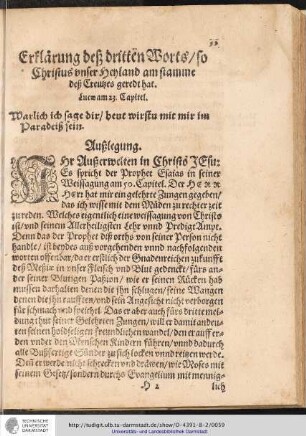 Erklärung deß dritten Worts/so
Christus vnser Heyland am stamme
deß Creutzes geredt hat.
Lucæ am 23. Capitel.
Warlich ich sage dir/ heut wirstu mit mir im
Paradeiß sein.
Außlegung.
IHr Außerwelten in Christo JEsu:
Es spricht der Prophet Esaias in seiner
Weissagung am 50. Capitel. Der HERR
HErr hat mir ein gelehrte Zungen gegeben/
das ich wisse mit den Müden zu rechter zeit
zu reden. Welches eigentlich eine weissagung von Christo
ist/vnd seinem Allerheiligsten Lehr vnnd Predig Ampt.
Denn das der Prophet diß orths von seiner Person nicht
handle/ ist beydes auß vorgehenden vnnd nachfolgenden
worten offenbar/da er erstlich der Gnadenreichen zukunfft
deß Messiæ in vnser Fleisch vnd Blut gedenckt/fürs an-
der seiner Blutigen Passion/ wie er seinen Rücken hab
müssen darhalten denen die jhn schlugen/ seine Wangen
denen die jhn raufften/vnd sein Angesicht nicht verborgen
für schmach vnnd speichel. Das er aber auch fürs dritte mel-
dung thut seiner Gelehrten Zungen/ will er damit andeu-
ten seinen holdseligen freundlichen wandel/den er auff er-
den vnder den Menschen Kindern führen/vnnd dadurch
alle Bußfertige Sünder zu sich locken vnnd reitzen werde.
Deñ er werde nicht schrecken vnd dräwen/ wie Moses mit
seinem Gesetz/sondern durchs Evangelium mit mennig-
H 2 lich
TECHNISCHE
UNIVERSITÄT
DARMSTADT
http://tudigit.ulb.tu-darmstadt.de/show/O-4391-8-2/0059
Universitäts- und Landesbibliothek Darmstadt